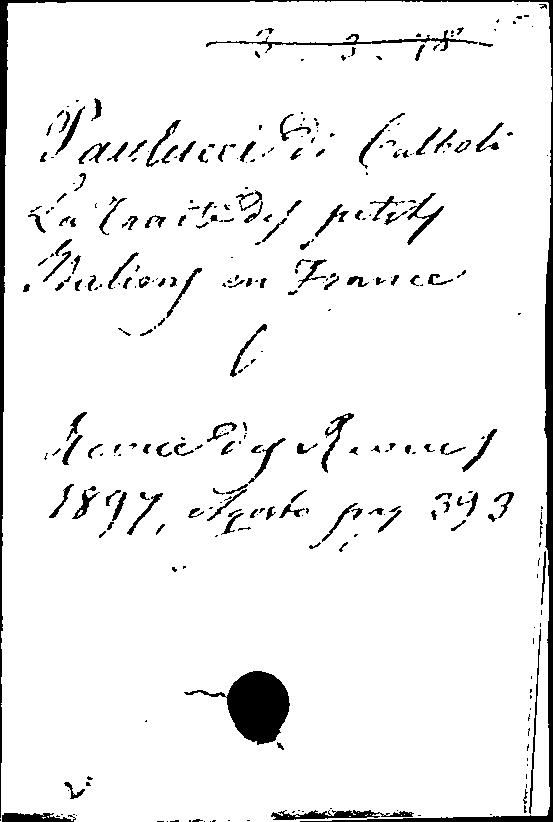 3. 3. 78
Paulucci di Calboli
La traite des petits
Italiens en France
Revue des Revues
1897, Agosto pag 393